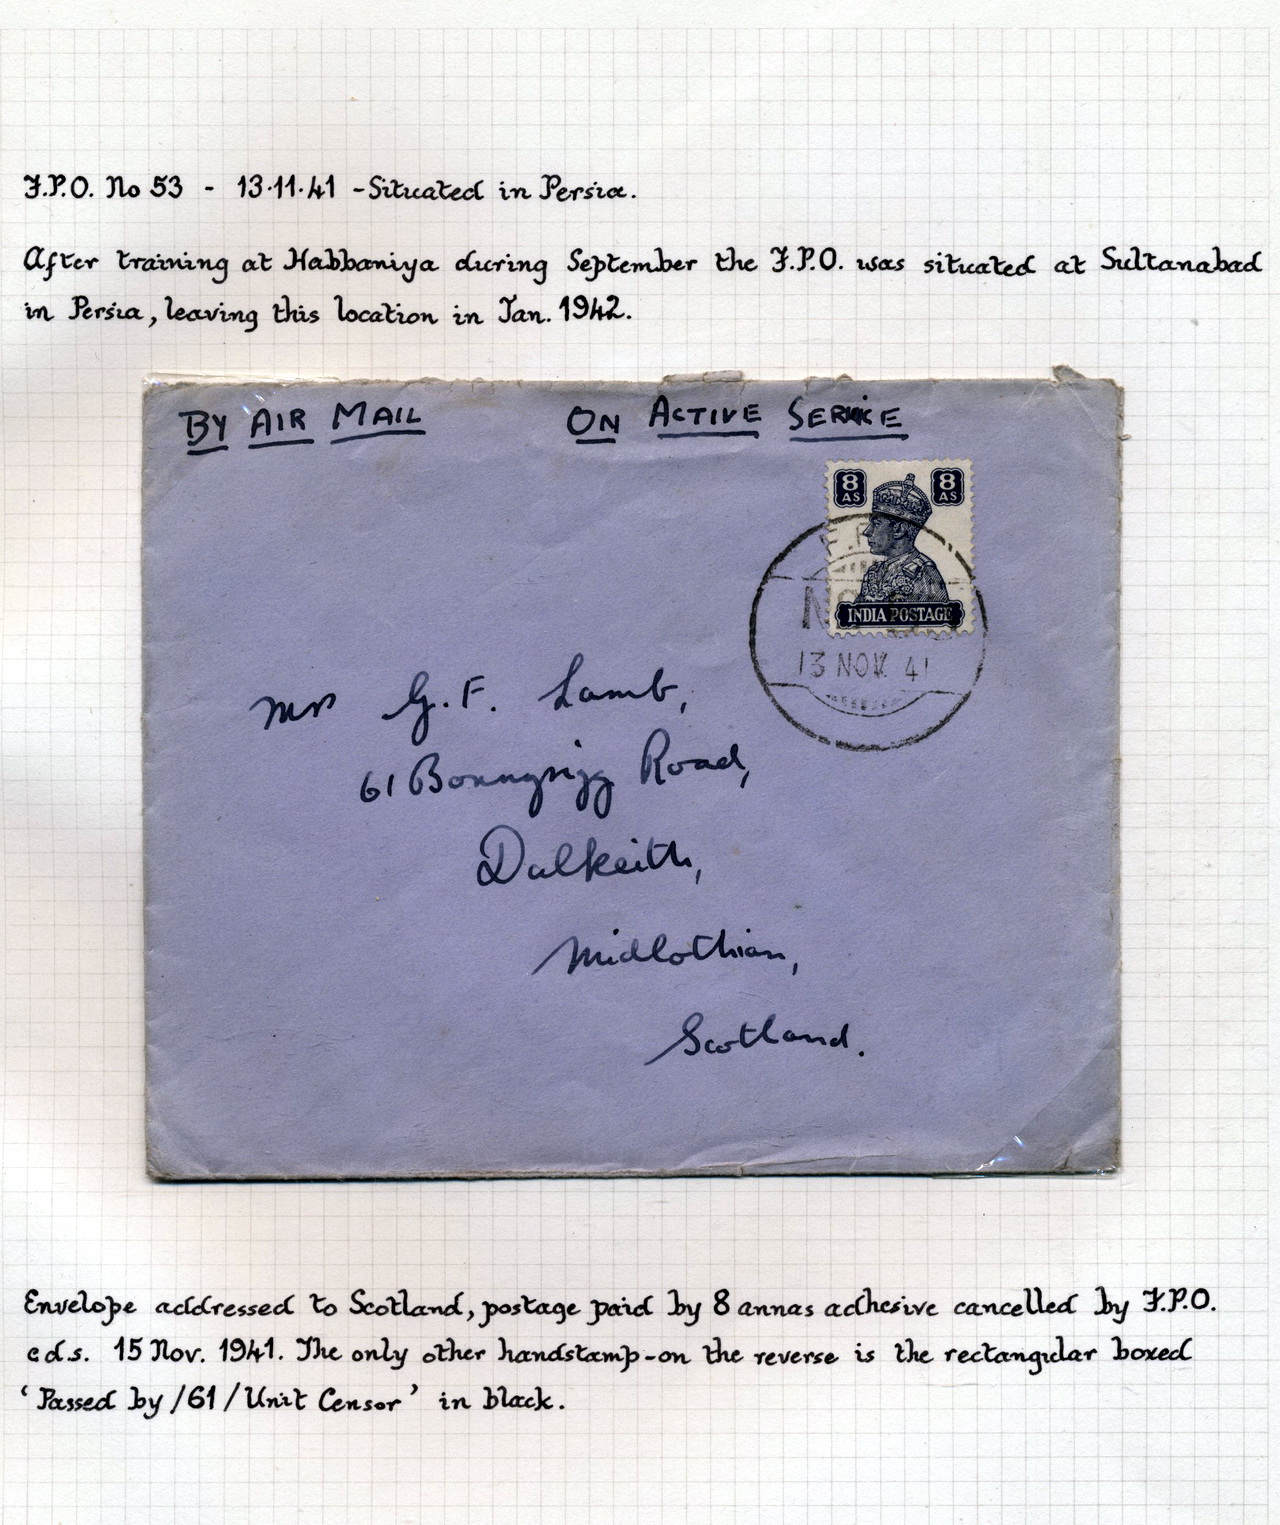 F.P.O. No 53 - 13.11.41 - Situated in Persia.
After training at Habbaniya during September the F.P.O. was situated at Sultanabad
in Persia, leaving this location in Jan. 1942.
BY AIR MAIL ON ACTIVE SERVICE
8 AS 8 AS
INDIA POSTAGE
F.P.
NO
13 NOV. 41
Mrs G.F. Lamb,
61 Bonnyrigg Road,
Dalkeith,
Midlothian,
Scotland.
Envelope addressed to Scotland, postage paid by 8 annas adhesive cancelled by F.P.O.
c d.s. 15 Nov. 1941. The only other handstamp - on the reverse is the rectangular boxed
‘Passed by /61/ Unit Censor’ in black.